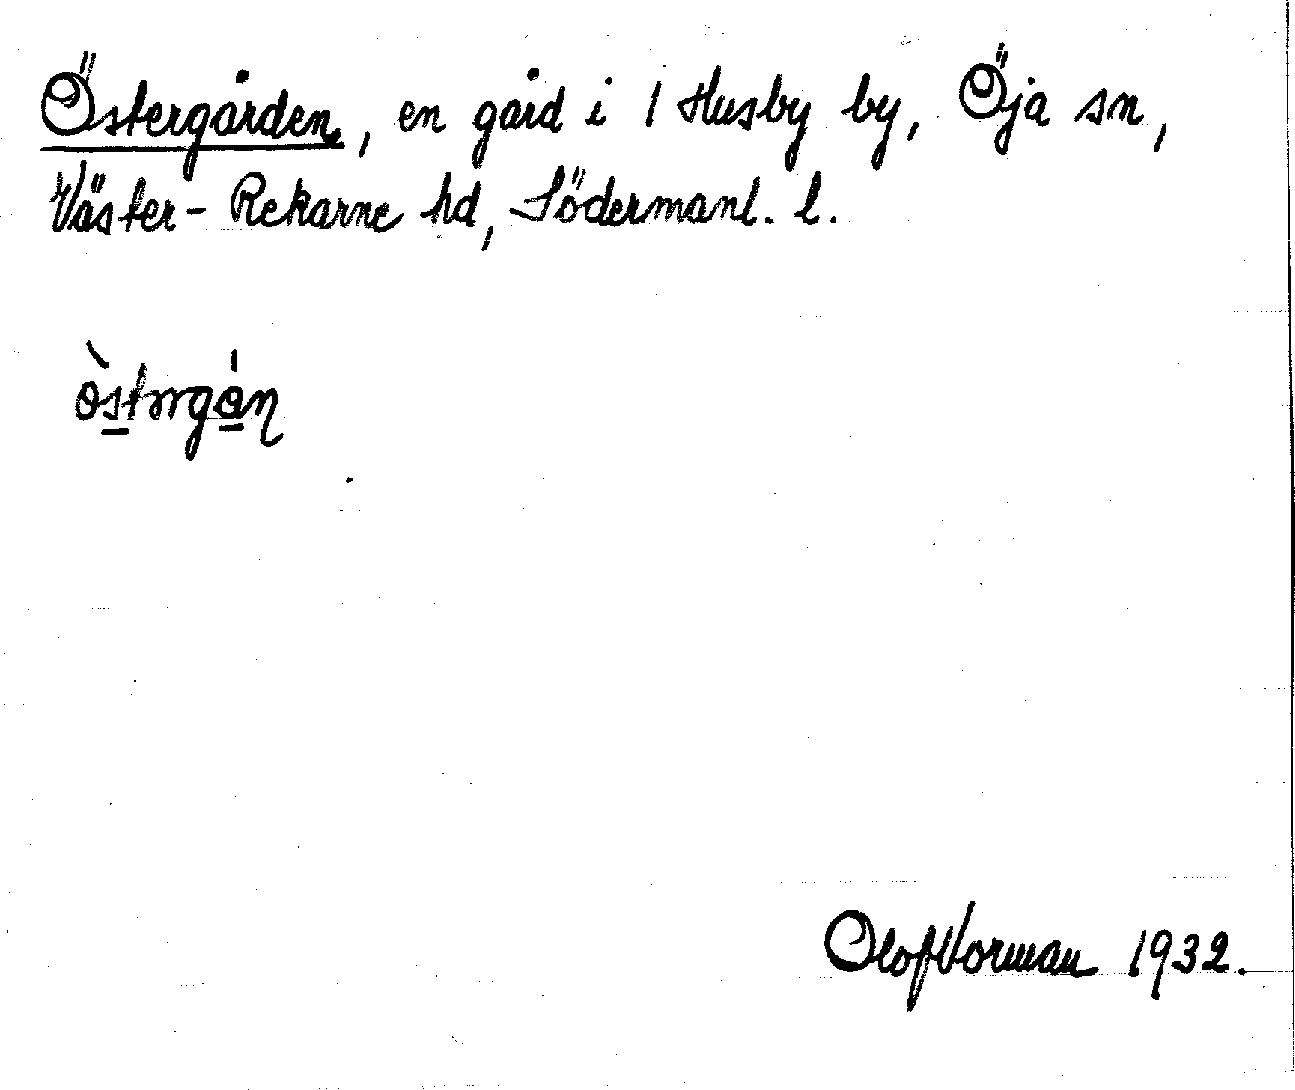 Östergården, en gård i / Husby by, Öja sn,
Väster-Rekarne hd, Södermanl. l.
Olof Vorman 1932.